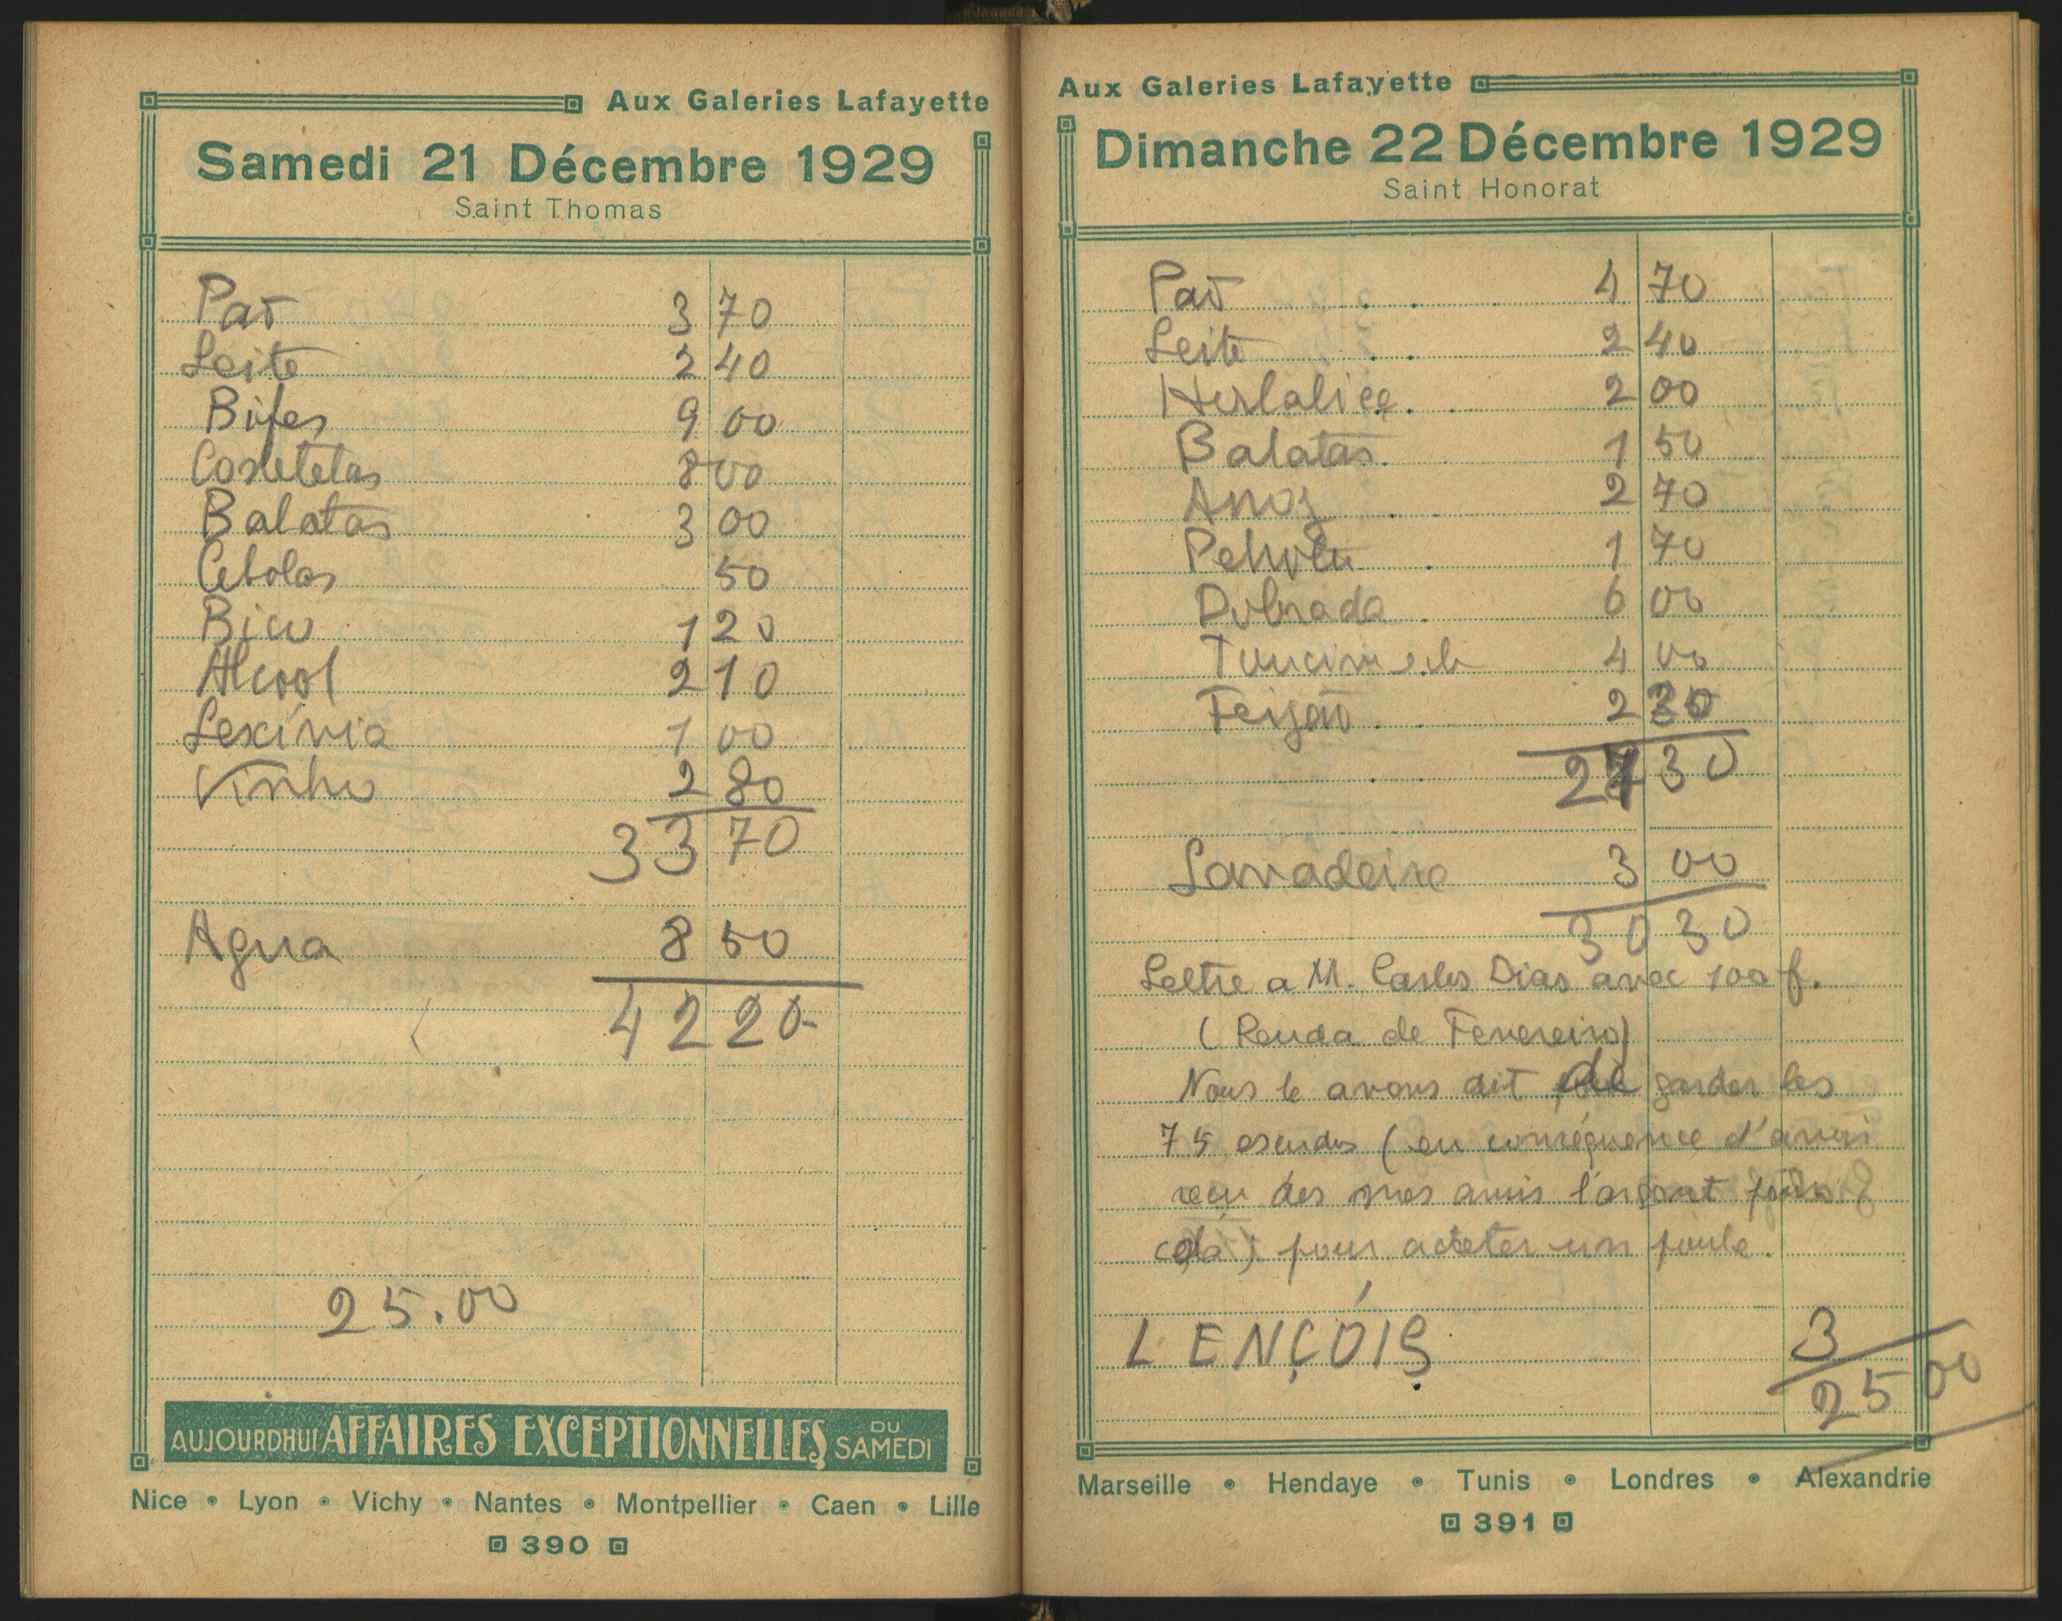 Aux Galeries Lafayette
Samedi 21 Décembre 1929
Saint Thomas
Pão 3 70
Leite 2 40
Bifes 9 00
Costeletas 8 00
Batatas 3 00
Cebolas 50
Bico 1 20
Alcool 2 10
Lexívia 1 00
Vinho 2 80
33 70
Agua 8 50
42 20
25.00
AUJOURDHUI AFFAIRES EXCEPTIONNELLES DU SAMEDI
Nice • Lyon • Vichy • Nantes • Montpellier • Caen • Lille
390
Aux Galeries Lafayette
Dimanche 22 Décembre 1929
Saint Honorat
Pão 4 70
Leite 2 40
Hortaliça 2 00
Batatas 1 50
Arroz 2 70
Petroleo 1 70
Dobrada 6 00
Toucinho 4 00
Feijão 2 30
27 30
Lavadeira 3 00
30 30
Lettre a M. Carlos Dias avec 100 f.
(Renda de Fevereiro)
Nous le avons dit de garder les
75 escudos (en conséquence d'avoir
reçu des mes amis l'argent
) pour acheter un poule.
LENÇÓIS 3
25 00
Marseille • Hendaye • Tunis • Londres • Alexandrie
391